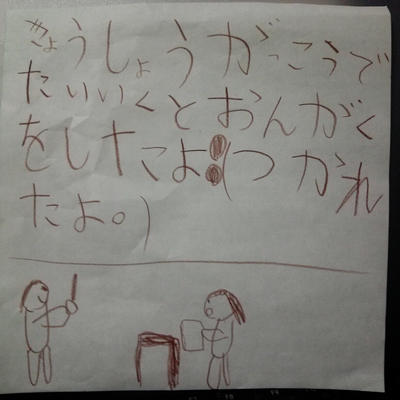 きょうしょうがっこうで
たいいくとおんがく
をしたよ!!(つかれ
たよ。)